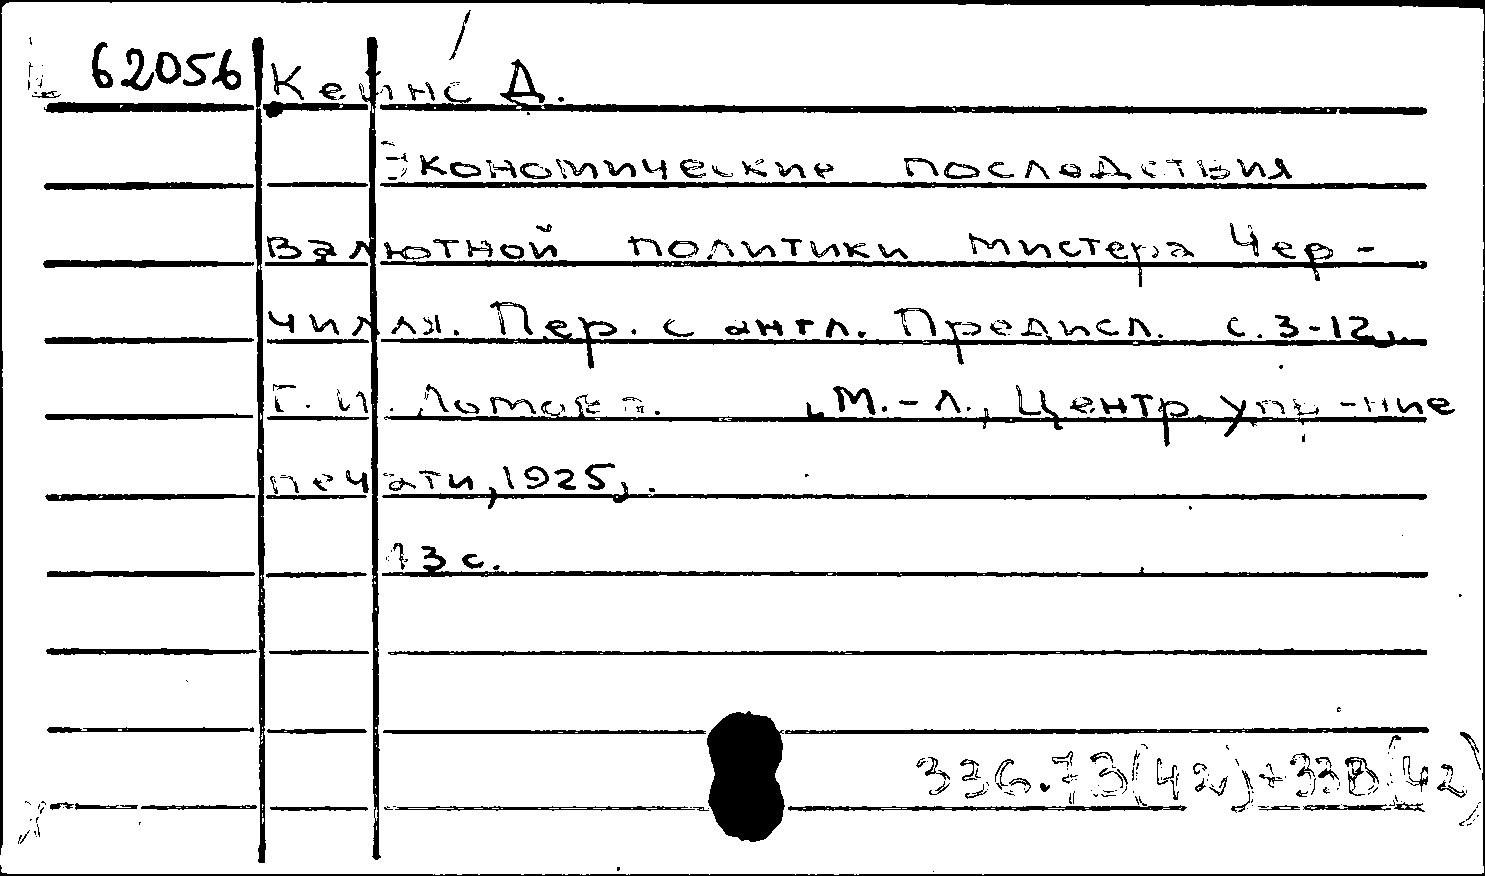 62056 Кейнс Д.
Экономические последствия
валютной политики мистера Чер-
чилля. Пер. с англ. Предисл. с. 3-12,.
Г. И. Ломова. М.-Л., Центр. упр-ние
печати, 1925,.
73 с.
336.73(42)+33В(42)